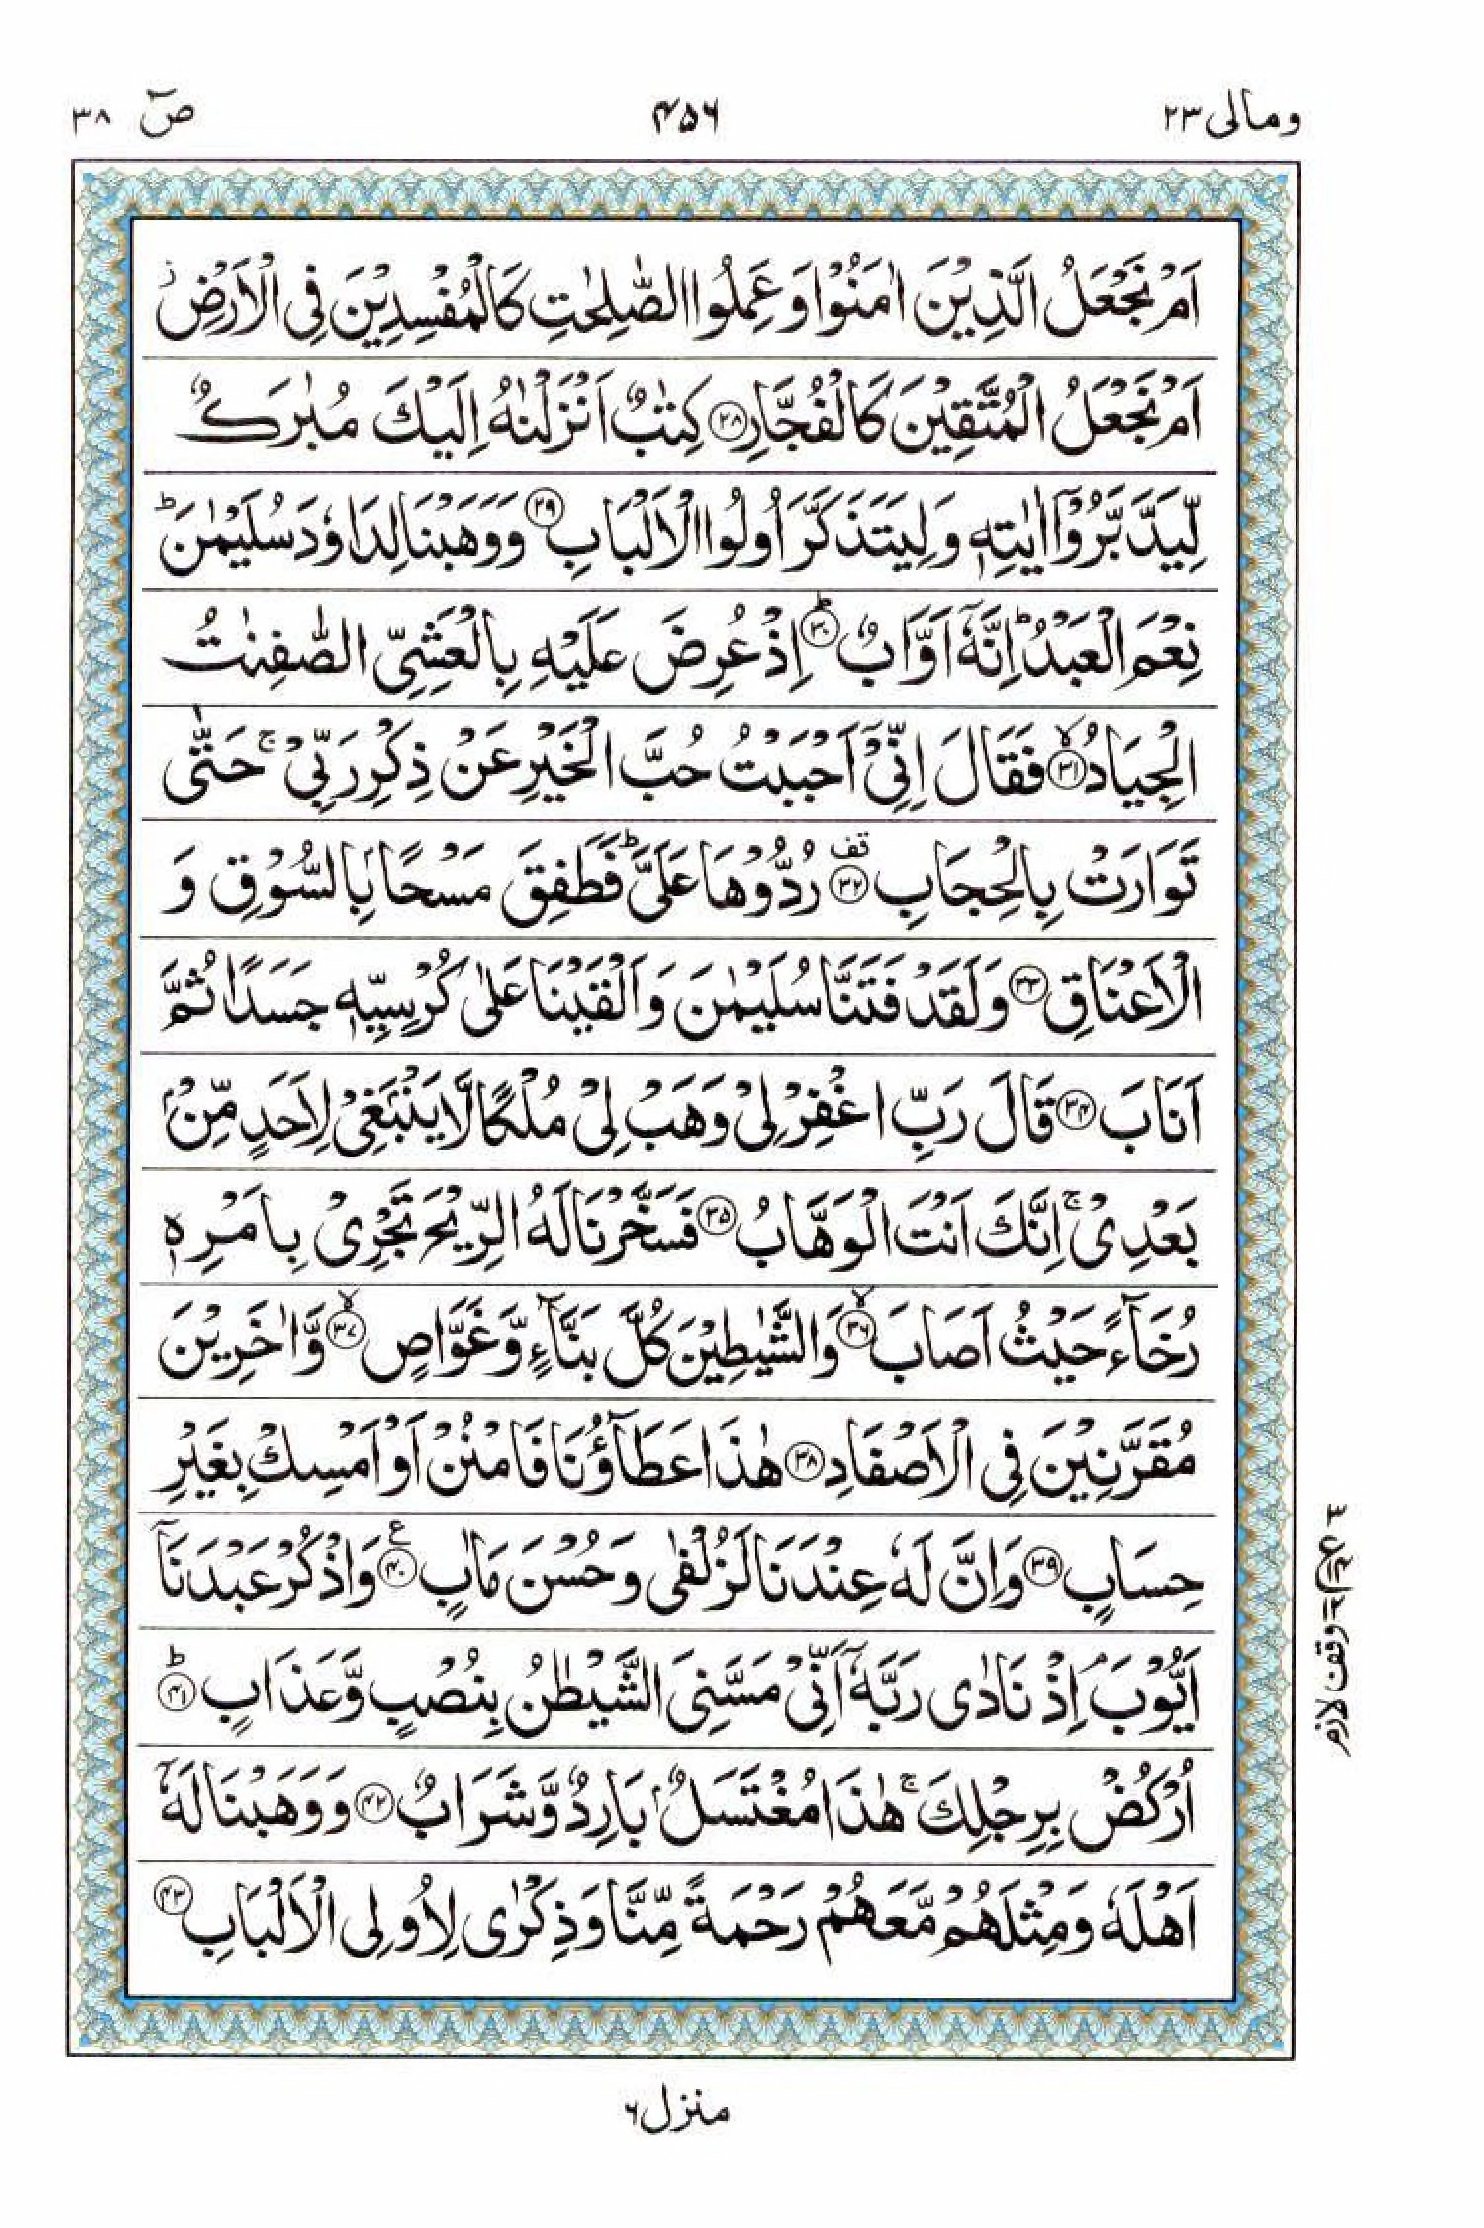 ومالی ۲۳ ۴۵۶ صٓ ۳۸
اَمْ نَجْعَلُ الَّذِيْنَ اٰمَنُوْا وَعَمِلُوا الصّٰلِحٰتِ كَالْمُفْسِدِيْنَ فِى الْاَرْضِ ز
اَمْ نَجْعَلُ الْمُتَّقِيْنَ كَالْفُجَّارِ ﴿۲۸﴾ كِتٰبٌ اَنْزَلْنٰهُ اِلَيْكَ مُبٰرَكٌ
لِّيَدَّبَّرُوْۤا اٰيٰتِهٖ وَلِيَتَذَكَّرَ اُولُوا الْاَلْبَابِ ﴿۲۹﴾ وَوَهَبْنَا لِدَاوٗدَ سُلَيْمٰنَ ؕ
نِعْمَ الْعَبْدُ ؕ اِنَّهٗۤ اَوَّابٌ ﴿۳۰﴾ ؕ اِذْ عُرِضَ عَلَيْهِ بِالْعَشِىِّ الصّٰفِنٰتُ
الْجِيَادُ ﴿۳۱﴾ ۙ فَقَالَ اِنِّىْۤ اَحْبَبْتُ حُبَّ الْخَيْرِ عَنْ ذِكْرِ رَبِّىْ ۚ حَتّٰى
تَوَارَتْ بِالْحِجَابِ ﴿۳۲﴾ قف رُدُّوْهَا عَلَىَّ ؕ فَطَفِقَ مَسْحًۢا بِالسُّوْقِ وَ
الْاَعْنَاقِ ﴿۳۳﴾ وَلَقَدْ فَتَنَّا سُلَيْمٰنَ وَاَلْقَيْنَا عَلٰى كُرْسِيِّهٖ جَسَدًا ثُمَّ
اَنَابَ ﴿۳۴﴾ قَالَ رَبِّ اغْفِرْ لِىْ وَهَبْ لِىْ مُلْكًا لَّا يَنْۢبَغِىْ لِاَحَدٍ مِّنْۢ
بَعْدِىْ ۚ اِنَّكَ اَنْتَ الْوَهَّابُ ﴿۳۵﴾ فَسَخَّرْنَا لَهُ الرِّيْحَ تَجْرِىْ بِاَمْرِهٖ
رُخَآءً حَيْثُ اَصَابَ ﴿۳۶﴾ ۙ وَالشَّيٰطِيْنَ كُلَّ بَنَّآءٍ وَّغَوَّاصٍ ﴿۳۷﴾ ۙ وَّاٰخَرِيْنَ
مُقَرَّنِيْنَ فِى الْاَصْفَادِ ﴿۳۸﴾ هٰذَا عَطَآؤُنَا فَامْنُنْ اَوْ اَمْسِكْ بِغَيْرِ
حِسَابٍ ﴿۳۹﴾ وَاِنَّ لَهٗ عِنْدَنَا لَزُلْفٰى وَحُسْنَ مَاٰبٍ ﴿۴۰﴾ ع وَاذْكُرْ عَبْدَنَاۤ
اَيُّوْبَ ۘ اِذْ نَادٰى رَبَّهٗۤ اَنِّىْ مَسَّنِىَ الشَّيْطٰنُ بِنُصْبٍ وَّعَذَابٍ ﴿۴۱﴾ ؕ
اُرْكُضْ بِرِجْلِكَ ۚ هٰذَا مُغْتَسَلٌۢ بَارِدٌ وَّشَرَابٌ ﴿۴۲﴾ وَوَهَبْنَا لَهٗۤ
اَهْلَهٗ وَمِثْلَهُمْ مَّعَهُمْ رَحْمَةً مِّنَّا وَذِكْرٰى لِاُولِى الْاَلْبَابِ ﴿۴۳﴾
وقف لازم
منزل ۶